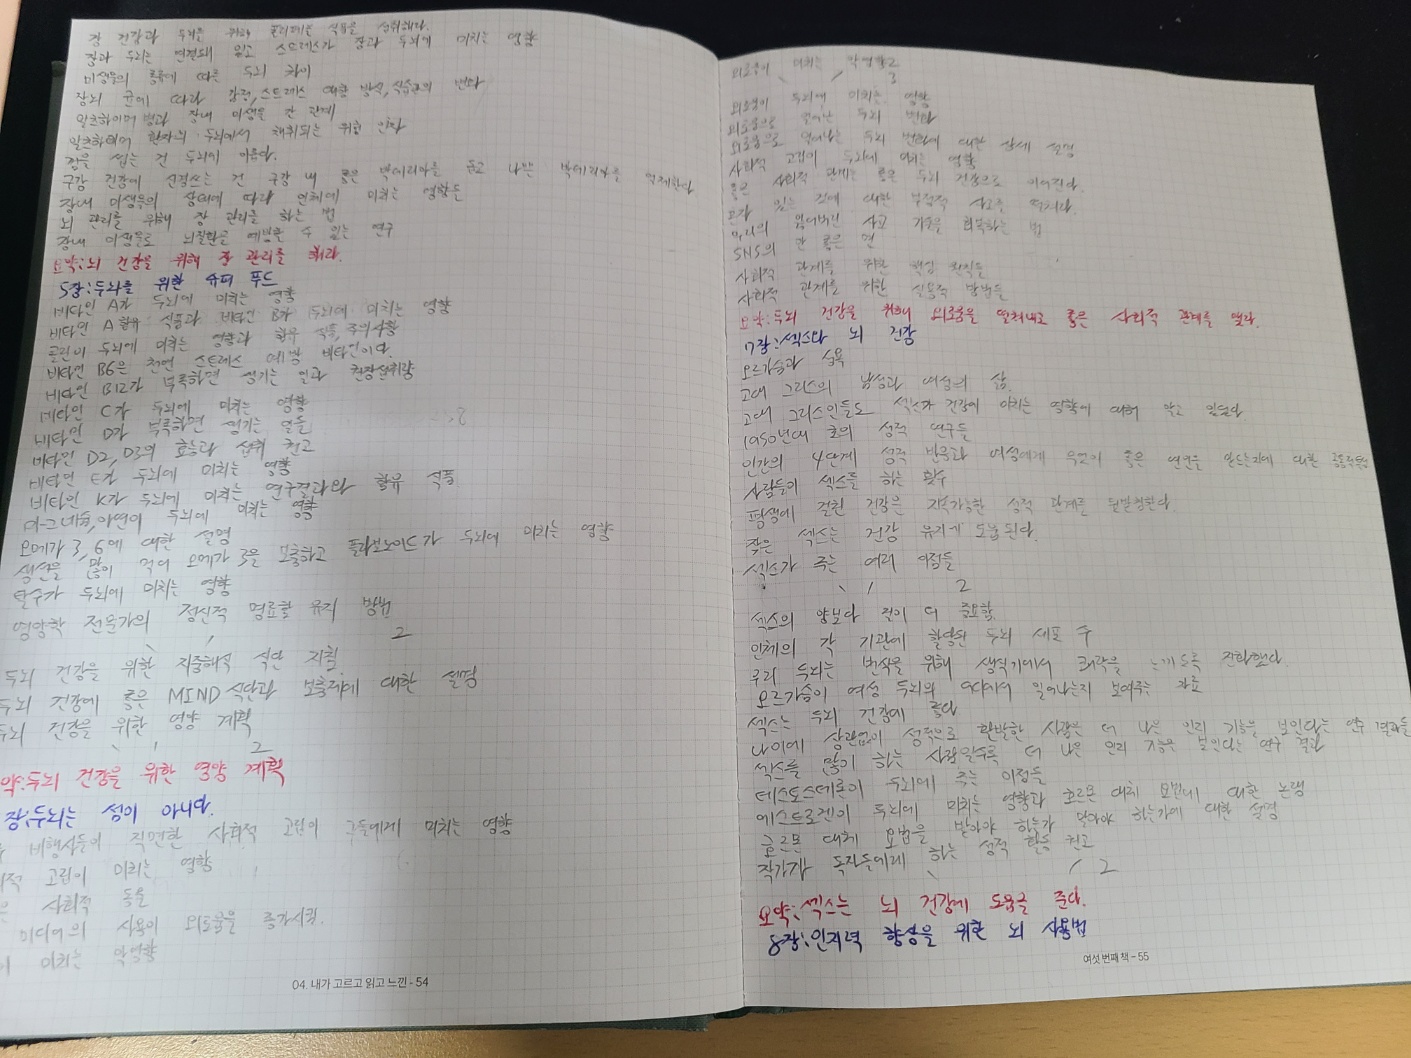 장 건강과 두뇌를 위해 식품을 섭취해라.
장과 두뇌는 연결돼 있고 스트레스가 장과 두뇌에 미치는 영향
미생물의 종류에 따른 두뇌 차이
장뇌 균에 따라 감정, 스트레스 대항 방식, 식습관의 변화
알츠하이머 병과 장내 미생물 간 관계
알츠하이머 환자의 두뇌에서 채취되는
껌을 씹는 건 두뇌에 이롭다.
구강 건강에 신경쓰는 건 구강 내 좋은 박테리아를 돕고 나쁜 박테리아를 억제한다
장내 미생물의 상태에 따라 인체에 미치는 영향들
뇌 관리를 위해 장 관리를 하는 법
장내 미생물로 뇌질환을 예방할 수 있는 연구
요약: 뇌 건강을 위해 장 관리를 해라.
5장: 두뇌를 위한 슈퍼 푸드
비타민 A가 두뇌에 미치는 영향
비타민 A 함유 식품과 비타민 B가 두뇌에 미치는 영향
콜린이 두뇌에 미치는 영향과 함유 식품, 주의사항
비타민 B6은 천연 스트레스 예방 비타민이다.
비타민 B12가 부족하면 생기는 일과 권장섭취량
비타민 C가 두뇌에 미치는 영향
비타민 D가 부족하면 생기는 일들
비타민 D2, D3의 효능과 섭취 권고
비타민 E가 두뇌에 미치는 영향
비타민 K가 두뇌에 미치는 연구결과와 함유 식품
마그네슘, 아연이 두뇌에 미치는 영향
오메가 3, 6에 대한 설명
생선을 많이 먹어 오메가 3을 보충하고 플라보노이드가 두뇌에 미치는 영향
탈수가 두뇌에 미치는 영향
영양학 전문가의 정신적 명료함 유지 방법
2
두뇌 건강을 위한 지중해식 식단 지침
두뇌 건강에 좋은 MIND 식단과 보충제에 대한 설명
두뇌 건강을 위한 영양 계획
2
약: 두뇌 건강을 위한 영양 계획
장: 두뇌는 섬이 아니다.
비행사들이 직면한 사회적 고립이 그들에게 미치는 영향
고립이 미치는 영향
사회적 동물
미디어의 사용이 외로움을 증가시킴.
미치는 악영향
04. 내가 고르고 읽고 느낀 - 54
외로움이 미치는 악영향2
3
외로움이 두뇌에 미치는 영향
외로움으로 일어난 두뇌 변화
외로움으로 일어나는 두뇌 변화에 대한 상세 설명
사회적 고립이 두뇌에 미치는 영향
좋은 사회적 관계는 좋은 두뇌 건강으로 이어진다.
있는 것에 대한 부정적 사고를 떨쳐라.
우리의 잃어버린 사교 기술을 회복하는 법
SNS의 안 좋은 면
사회적 관계를 위한 핵심 원칙들
사회적 관계를 위한 실용적 방법들
요약: 두뇌 건강을 위해 외로움을 떨쳐내고 좋은 사회적 관계를 맺다.
7장: 섹스와 뇌 건강
오르가슴과 성욕
고대 그리스의 남성과 여성의 삶.
고대 그리스인들도 섹스가 건강에 미치는 영향에 대해 알고 있었다
1950년대 초의 성적 연구들
인간의 4단계 성적 반응과 여성에게 무엇이 좋은 연인을 만드는지에 대한
사람들이 섹스를 하는 횟수
평생에 걸친 건강은 지속가능한 성적 관계를 뒷받침한다.
잦은 섹스는 건강 유지에 도움된다.
섹스가 주는 여러 이점들
2
섹스의 양보다 질이 더 중요함.
인체의 각 기관에 할당된 두뇌 세포 수
우리 두뇌는 번식을 위해 생식기에서 쾌락을 느끼도록 진화했다.
오르가슴이 여성 두뇌의 어디에서 일어나는지 보여주는 자료
섹스는 두뇌 건강에 좋다
나이에 상관없이 성적으로 활발한 사람은 더 나은 인지 기능을 보인다는 연구 결과들
섹스를 많이 하는 사람일수록 더 나은 인지 기능을 보인다는 연구 결과
테스토스테론이 두뇌에 주는 이점들
에스트로겐이 두뇌에 미치는 영향과 호르몬 대체 요법에 대한 논쟁
호르몬 대체 요법을 받아야 하는가 말아야 하는가에 대한 설명
작가가 독자들에게 하는 성적 활동 권고
2
요약: 섹스는 뇌 건강에 도움을 준다.
8장: 인지력 향상을 위한 뇌 사용법
여섯 번째 책 - 55